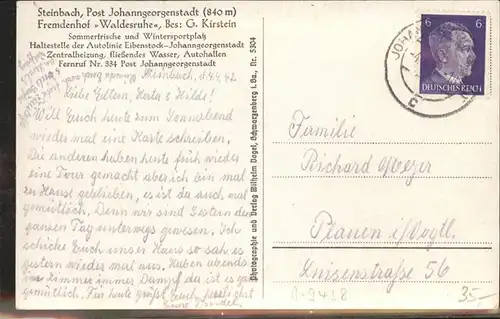 Steinbach, Post Johanngeorgenstadt (840 m)
Fremdenhof »Waldesruhe«, Bes: G. Kirstein
Sommerfrische und Wintersportplatz
Haltestelle der Autolinie Eibenstock-Johanngeorgenstadt
Zentralheizung, fließendes Wasser, Autohallen
Fernruf Nr. 334 Post Johanngeorgenstadt
Steinbach, 42
Liebe Eltern, Herta & Hilde!
Will Euch heute zum Sonnabend
wieder mal eine Karte schreiben.
Die anderen haben heute früh wieder
eine Tour gemacht aber ich bin mal
zu Hause geblieben, es ist da auch mal
gemütlich. Denn wir sind Gestern den
ganzen Tag unterwegs gewesen. Ich
schicke Euch unser Haus so sah es
gestern wieder mal aus. Haben abends
im Zimmer immer Dampf da ist es ganz
gemütlich. Für heute grüßt Euch herzlichst
Photographie und Verlag Wilhelm Vogel, Schwarzenberg i. Sa., Nr. 5304
6 6
DEUTSCHES REICH
JOHANN
Familie
Richard Meyer
Plauen i/Vogtl.
Luisenstraße 56
A-9428
35-